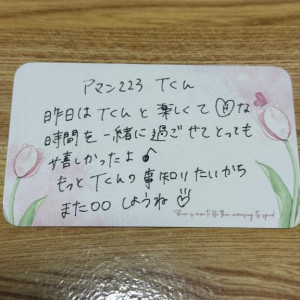 アマン223 Tくん
昨日はTくんと楽しくて Ⓗな
時間を一緒に過ごせてとっても
嬉しかったよ♪
もっとTくんの事知りたいから
また〇〇しようね
There is more to life than increasing its speed.